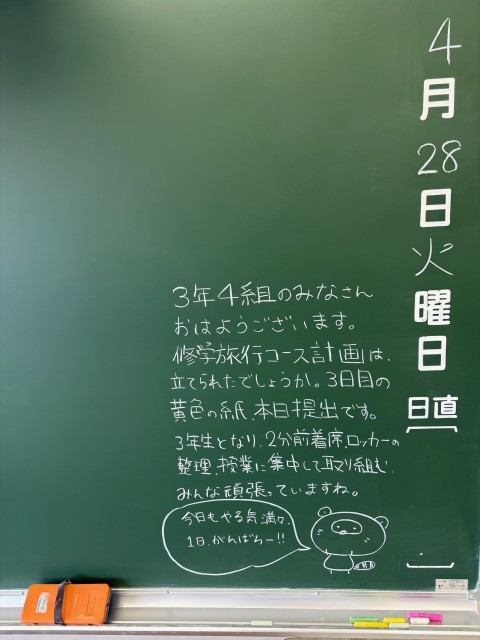 4月28日火曜日
日直
3年4組のみなさん
おはようございます。
修学旅行コース計画は、
立てられたでしょうか。3日目の
黄色の紙、本日提出です。
3年生となり、2分前着席、ロッカーの
整理、授業に集中して取り組む、
みんな頑張っていますね。
今日もやる気満々、
1日、がんばろー!!